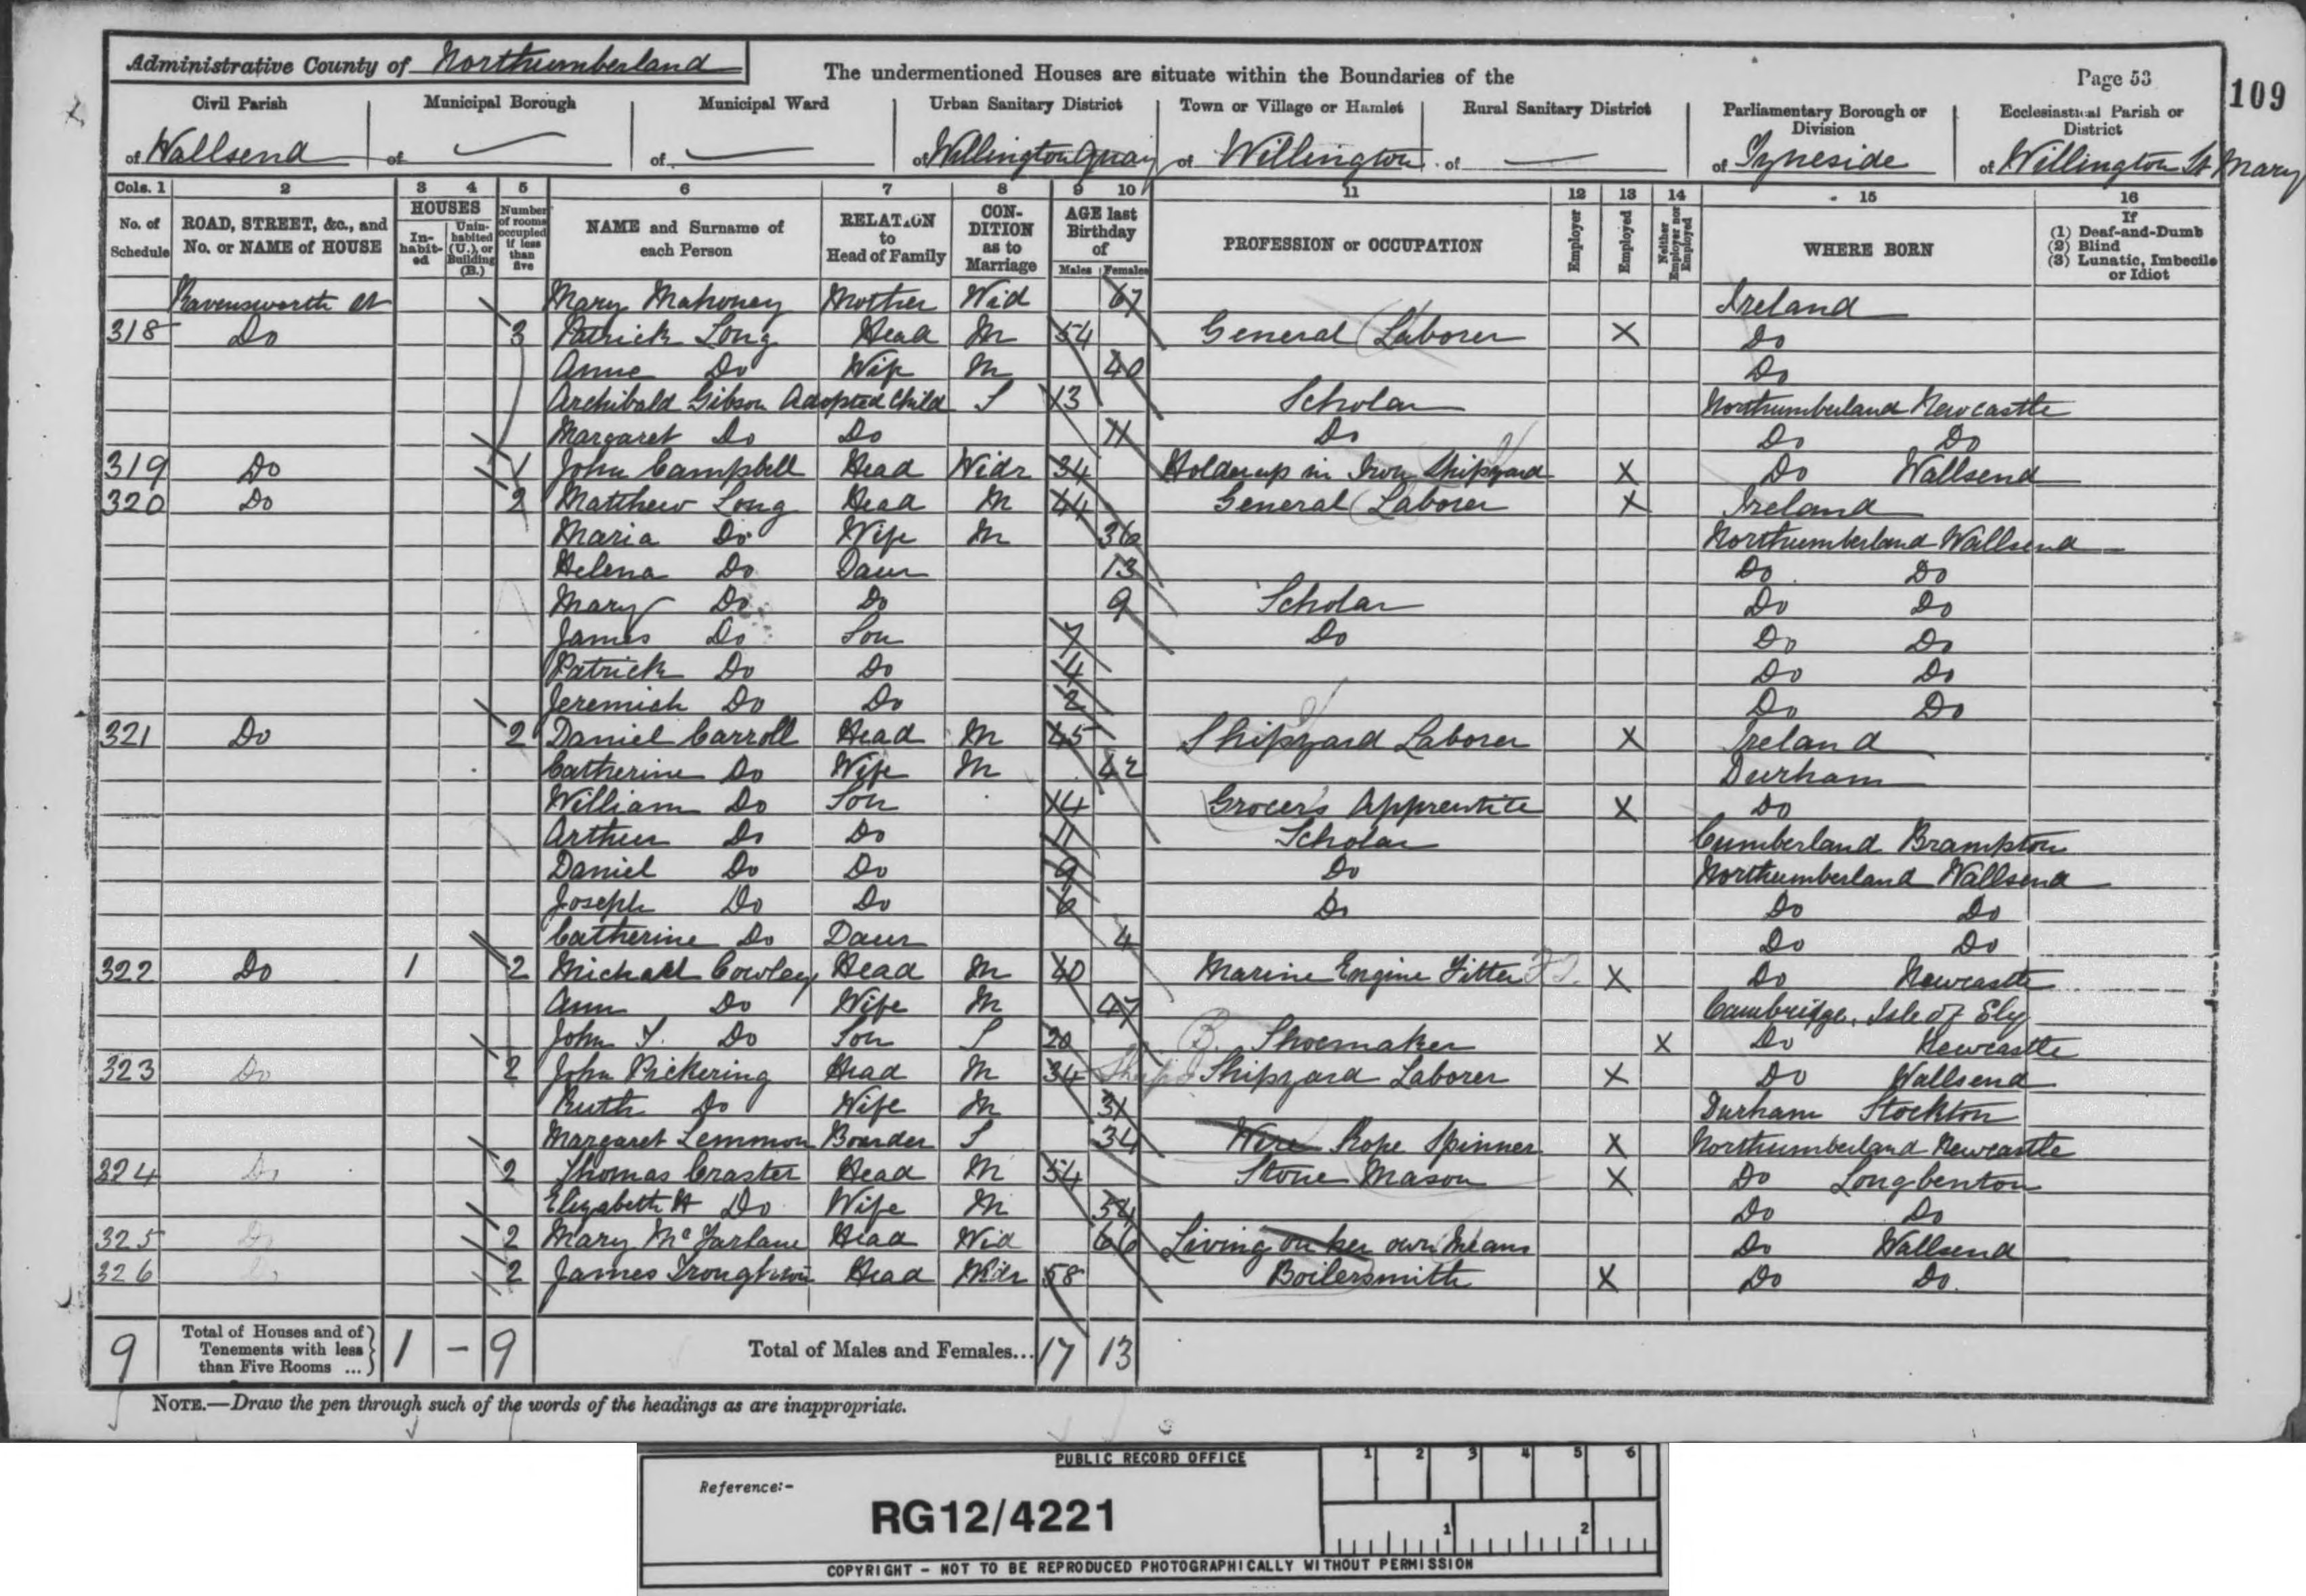 Administrative County of Northumberland
The undermentioned Houses are situate within the Boundaries of the
Page 53
109
Civil Parish Municipal Borough Municipal Ward Urban Sanitary District Town or Village or Hamlet Rural Sanitary District Parliamentary Borough or Division Ecclesiastical Parish or District
of Wallsend of — of — of Willington Quay of Willington of — of Tyneside of Willington St Mary
Cols. 1 2 3 4 5 6 7 8 9 10 11 12 13 14 15 16
No. of Schedule ROAD, STREET, &c., and No. or NAME of HOUSE HOUSES Inhabited Uninhabited (U.), or Building (B.) Number of rooms occupied if less than five NAME and Surname of each Person RELATION to Head of Family CONDITION as to Marriage AGE last Birthday of Males Females PROFESSION or OCCUPATION Employer Employed Neither Employer nor Employed WHERE BORN If (1) Deaf-and-Dumb (2) Blind (3) Lunatic, Imbecile or Idiot
Ravensworth St Mary Mahoney Mother Wid 67 Ireland
318 Do 3 Patrick Long Head M 54 General Laborer X Do
Anne Do Wife M 40 Do
Archibald Gibson Adopted Child S 13 Scholar Northumberland Newcastle
Margaret Do Do 11 Do Do Do
319 Do 1 John Campbell Head Widr 34 Holder up in Iron Shipyard X Do Wallsend
320 Do 2 Matthew Long Head M 44 General Laborer X Ireland
Maria Do Wife M 36 Northumberland Wallsend
Helena Do Daur 13 Do Do
Mary Do Do 9 Scholar Do Do
James Do Son 7 Do Do Do
Patrick Do Do 4 Do Do
Jeremiah Do Do 2 Do Do
321 Do 2 Daniel Carroll Head M 45 Shipyard Laborer X Ireland
Catherine Do Wife M 42 Durham
William Do Son 14 Grocer's Apprentice X Do
Arthur Do Do 11 Scholar Cumberland Brampton
Daniel Do Do 9 Do Northumberland Wallsend
Joseph Do Do 6 Do Do Do
Catherine Do Daur 4 Do Do
322 Do 1 2 Michael Cowley Head M 40 Marine Engine Fitter X Do Newcastle
Ann Do Wife M 47 Cambridge, Isle of Ely
John T. Do Son S 20 Shoemaker X Do Newcastle
323 Do 2 John Pickering Head M 34 Shipyard Laborer X Do Wallsend
Ruth Do Wife M 31 Durham Stockton
Margaret Lemmon Boarder S 34 Wire Rope Spinner X Northumberland Newcastle
324 Do 2 Thomas Craster Head M 54 Stone Mason X Do Longbenton
Elizabeth H Do Wife M 54 Do Do
325 Do 2 Mary McFarlane Head Wid 66 Living on her own Means Do Wallsend
326 Do 2 James Troughton Head Widr 58 Boilersmith X Do Do
9 Total of Houses and of Tenements with less than Five Rooms ... 1 – 9 Total of Males and Females... 17 13
NOTE.—Draw the pen through such of the words of the headings as are inappropriate.
PUBLIC RECORD OFFICE
1 2 3 4 5 6
Reference:-
RG12/4221
1 2
COPYRIGHT - NOT TO BE REPRODUCED PHOTOGRAPHICALLY WITHOUT PERMISSION